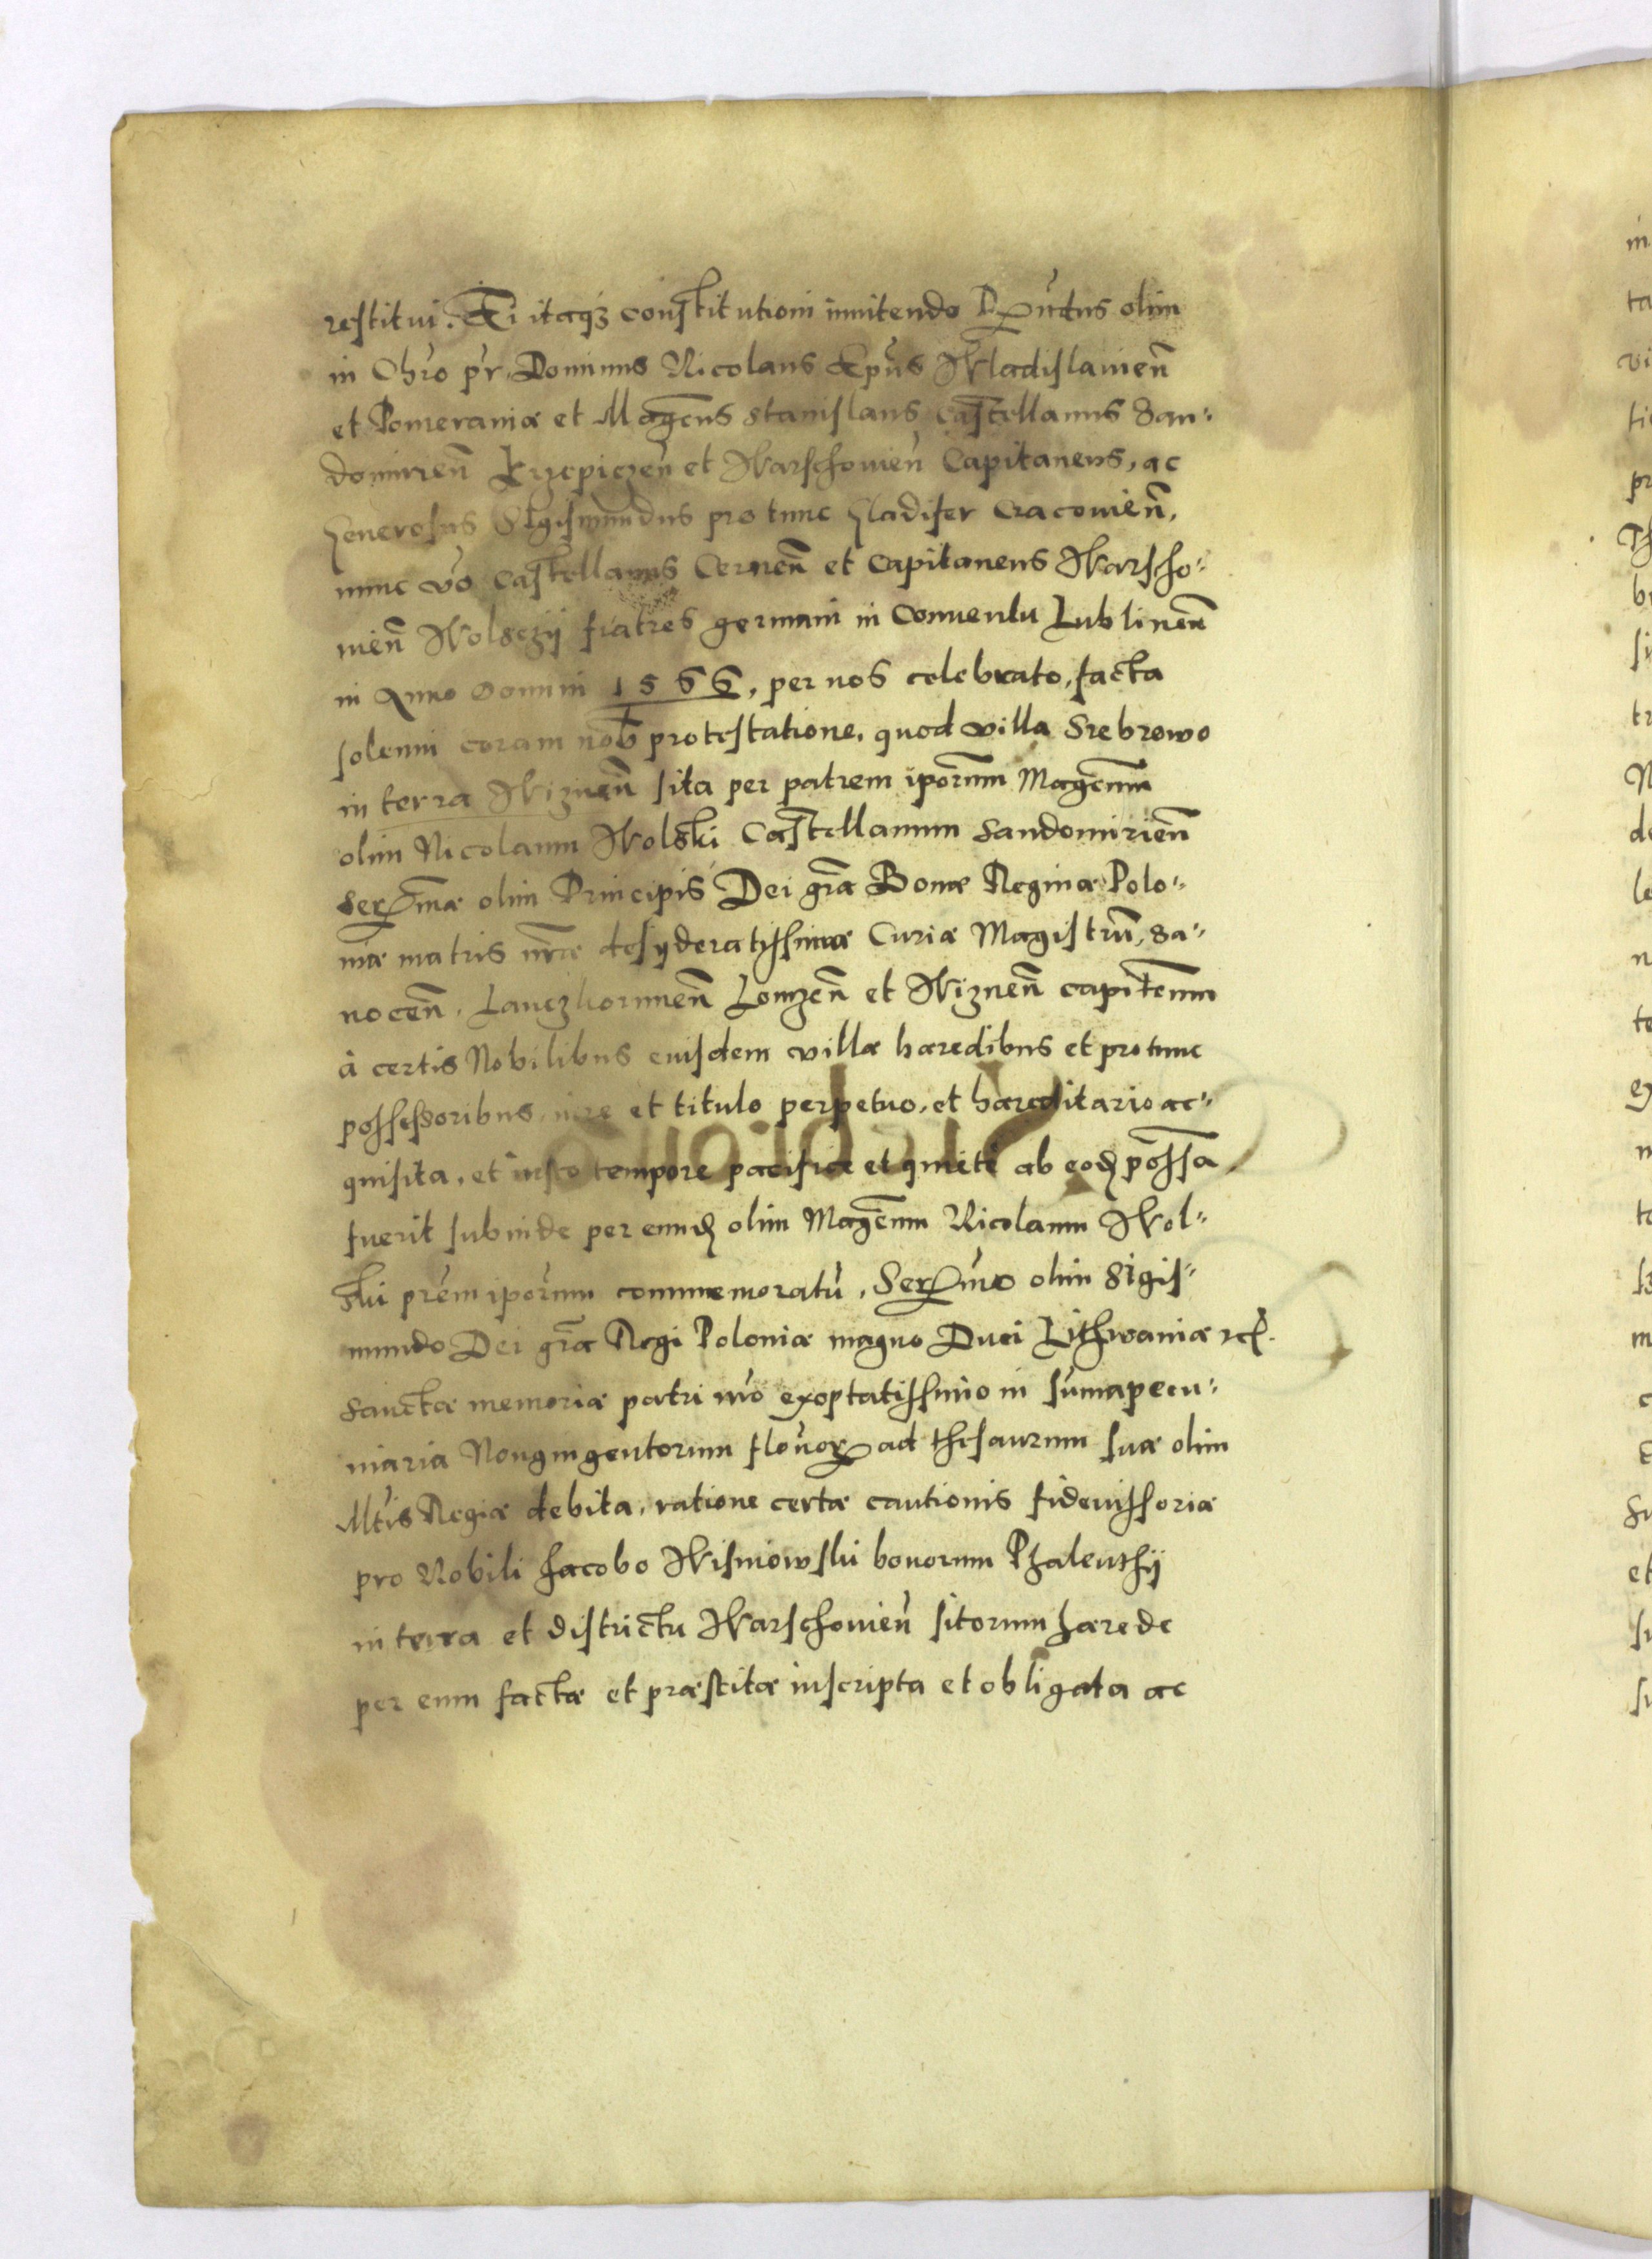 restitui. Ei itaqꝫ constitutioni innitendo Rꝑn̄dus olim
in Chr̄o pr̄ Dominus Nicolaus Epūs Wladislauien̄
et Pomeraniæ et Magcūs Stanislaus Castellanus San-
domirien̄ Krzepiczen̄ et Warschouien̄ Capitaneus, ac
Generosus Sigismundus pro tunc Gladifer Cracouien̄,
nunc vō Castellanus Cernen̄ et Capitaneus Warscho-
uien̄ Wolsczÿ fratres germani in Conuentu Lublinen̄
in Anno Domini 1566, per nos celebrato, facta
solenni coram nob̄ protestatione, quod villa Srebrowo
in terra Wiznen̄ sita per patrem ip̄orum Magcūm
olim Nicolaum Wolski Castellanum Sandomirien̄
Serᵐᵃe olim Principis Dei gr̄a Bonæ Reginæ Polo-
niæ matris nr̄æ desyderatissimæ Curiæ Magistrū, Sa-
nocen̄, Lanczkorunen̄ Lomzen̄ et Wiznen̄ capit̄eum
à certis Nobilibus eiusdem villæ hæredibus et pro tunc
possessoribus iure et titulo perpetuo, et hæreditario ac-
quisita, et iusto tempore pacifice et quietè ab eod̄ poss̄a
fuerit subinde per eund̄ olim Magcūm Nicolaum Wol-
ski prēm ip̄orum commemoratū, Serᵐᵒ olim Sigis-
mundo Dei gr̄a Regi Poloniæ magno Duci Lithwaniæ etc̄.
sanctæ memoriæ patri nr̄o exoptatissimo in sum̄a pecu-
niaria Nongingentorum flōnoꝝ ad thesaurum suæ olim
Mtīs Regiæ debita, ratione certæ cautionis fideiussoriæ
pro Nobili Jacobo Wisniowski bonorum Phalenthÿ
in terra et districtu Warschouien̄ sitorum hærede
per eum factæ et præstitæ inscripta et obligata ac